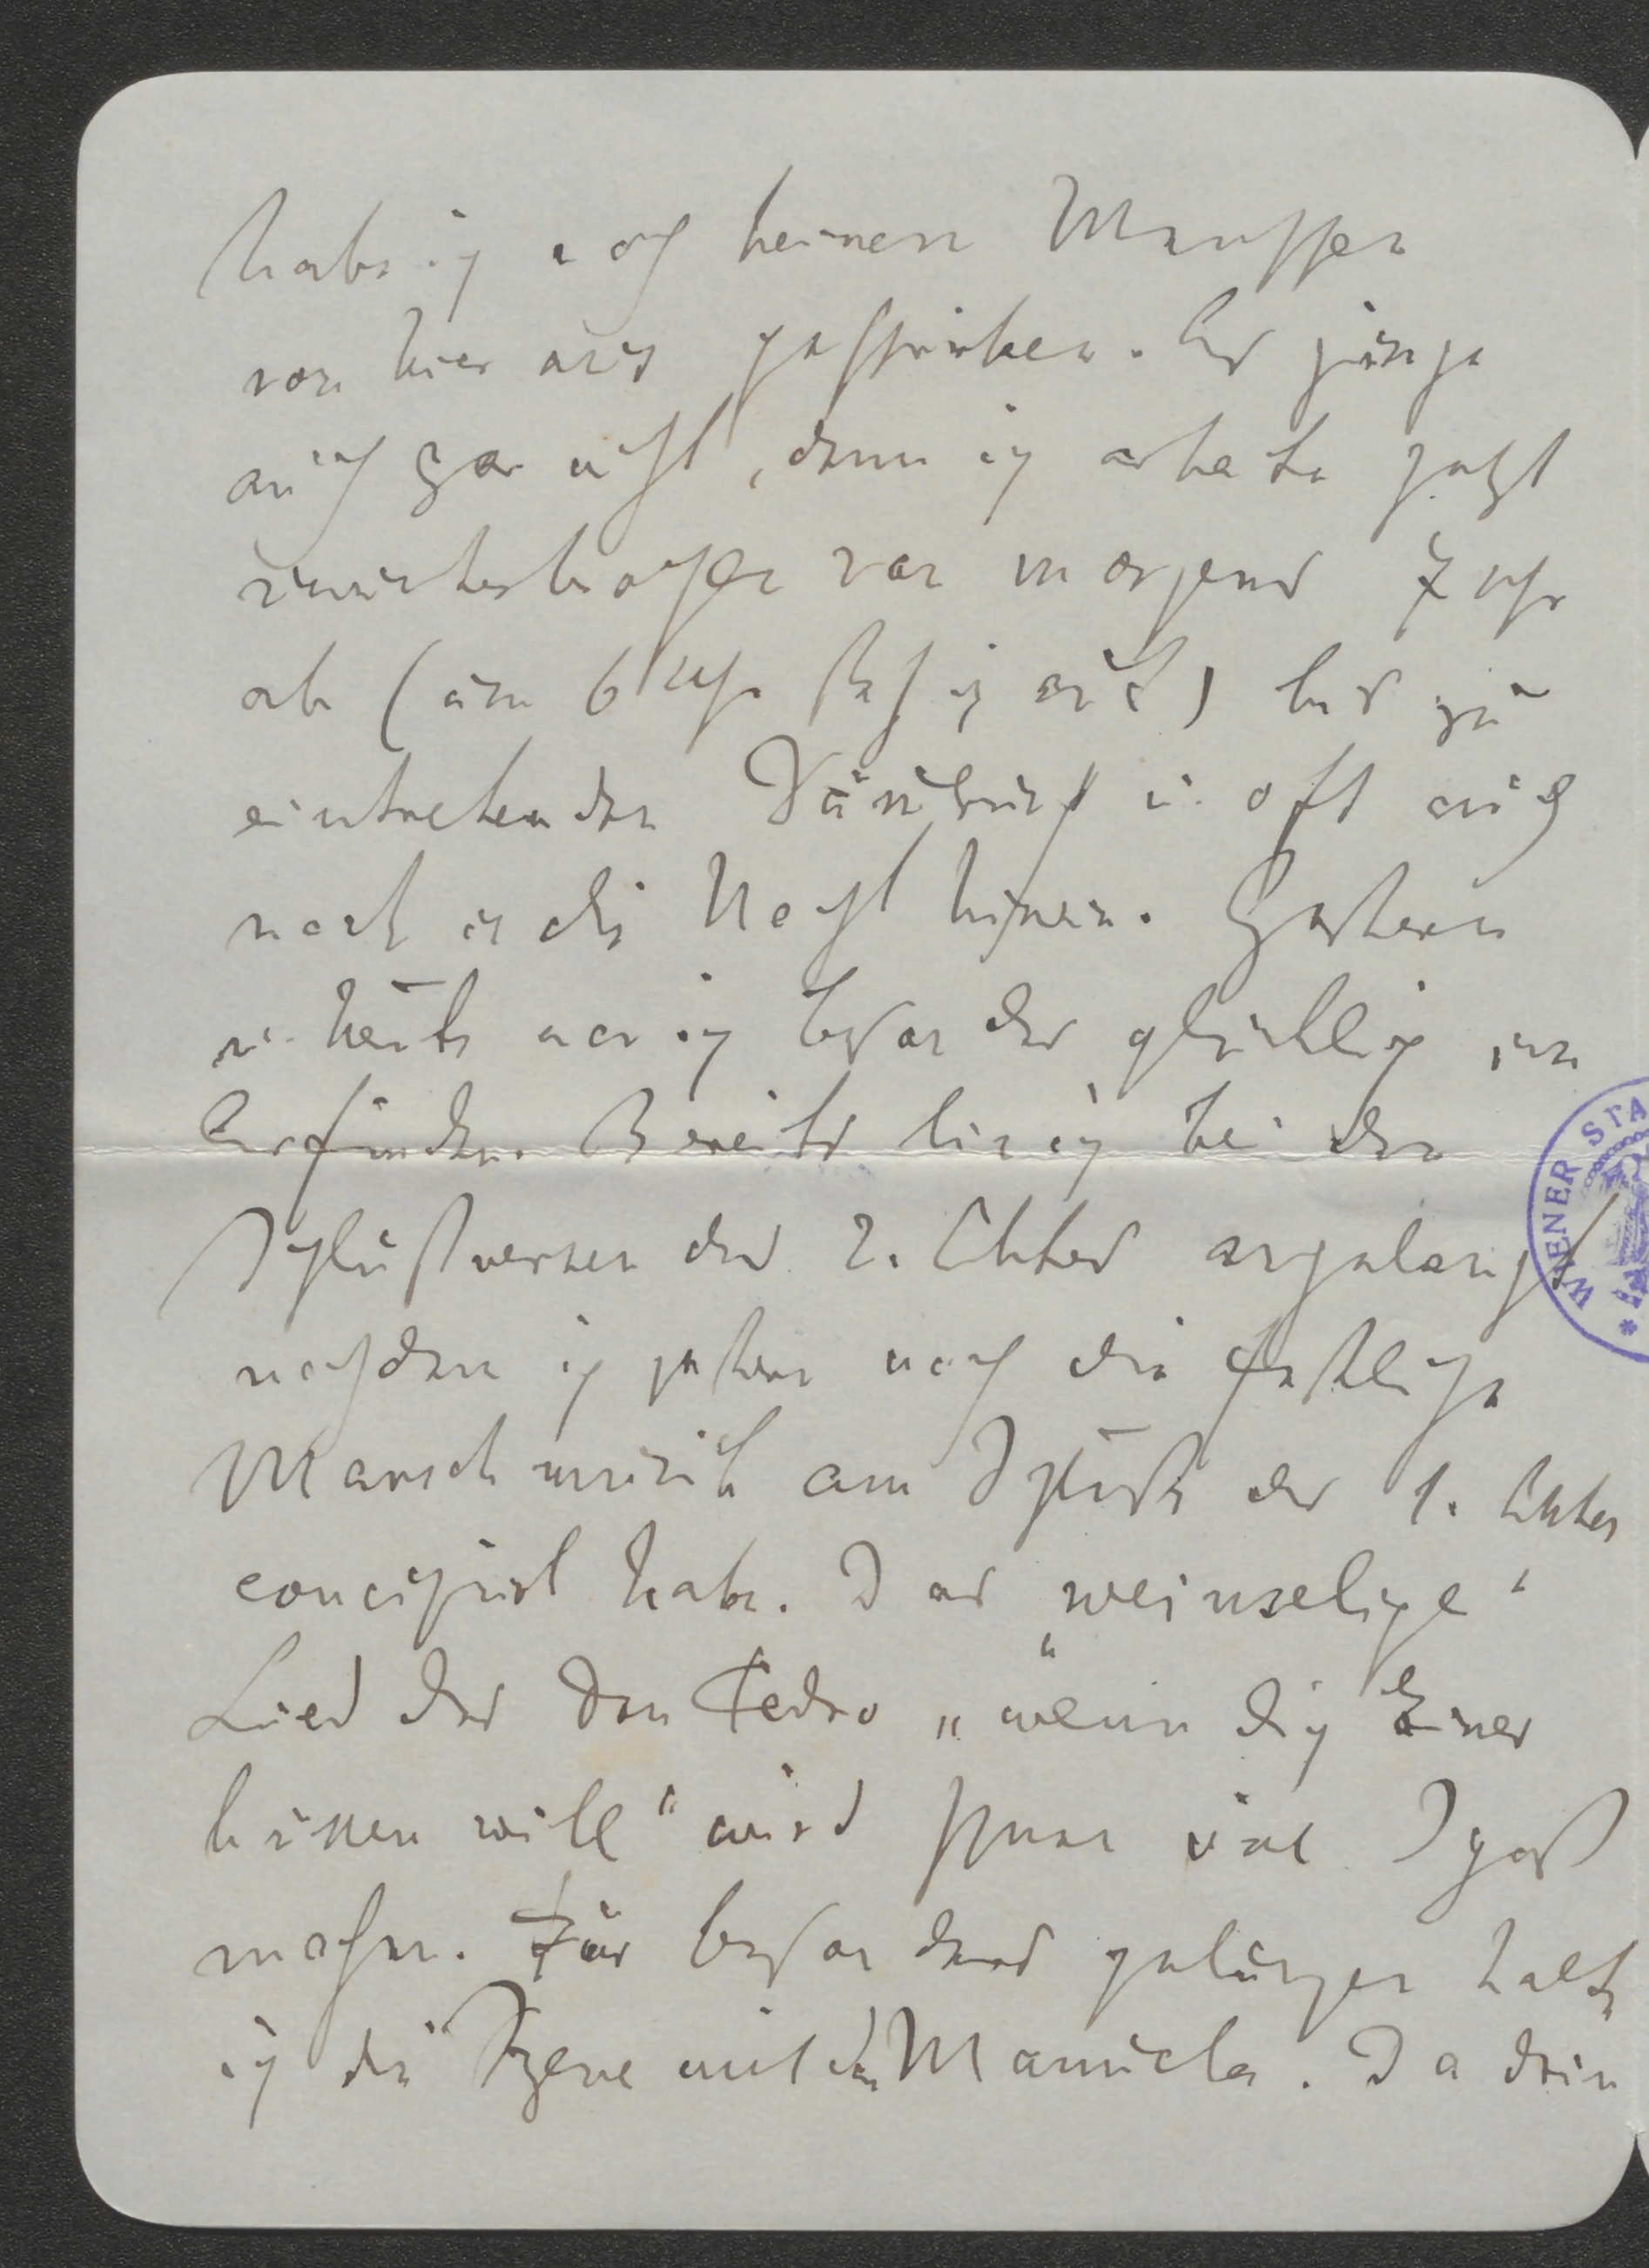 habe ich noch keinen Menschen
von hier aus gesprochen. Es ginge
auch gar nicht, denn ich arbeite jetzt
ununterbrochen von morgens 7 Uhr
ab (um 6 Uhr steh ich auf) bis zu
eintretender Dämmrung u. oft auch
noch in die Nacht hinein. Gestern
u. heute war ich besonders glücklich im
Erfinden. Bereits bin ich bei den
Schlußversen des 2. Aktes angelangt
nachdem ich gestern noch die festliche
Marschmusik am Schluße des 1. Aktes
concipirt habe. Das „weinselige“
Lied des Don Pedro „wenn dich Einer
küssen will“ wird Ihnen viel Spaß
machen. Für besonders gelungen halte
ich die Szene mit der Manuela. Da drin
WIENER STA